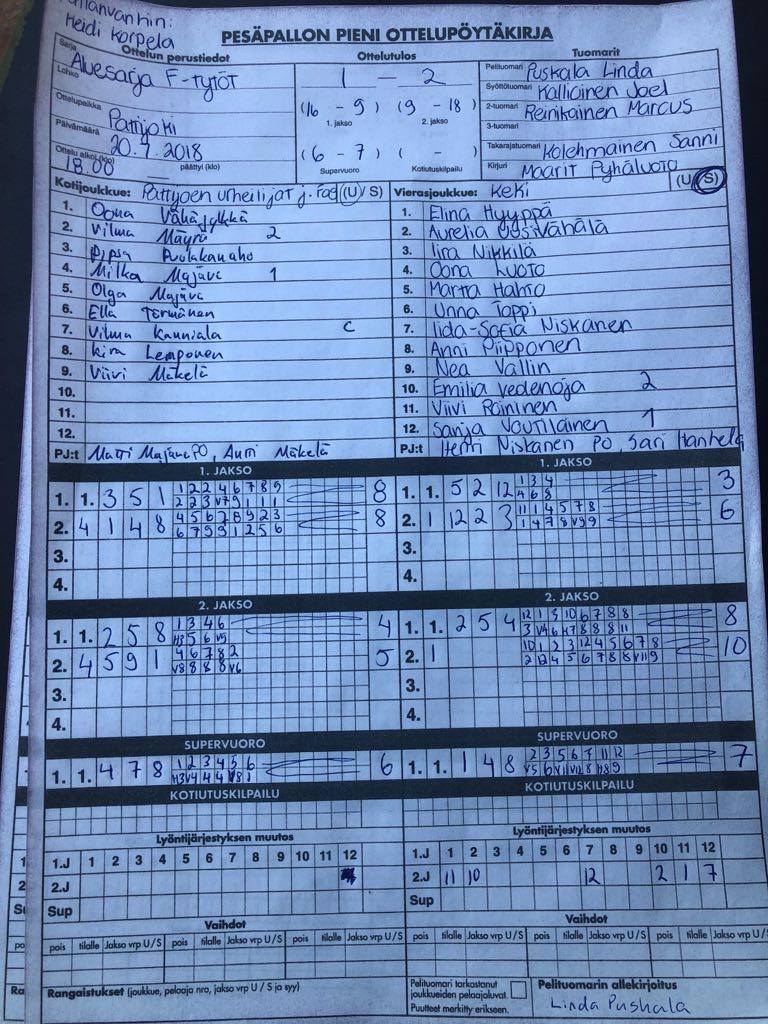 Heidi Korpela
PESÄPALLON PIENI OTTELUPÖYTÄKIRJA
Ottelun perustiedot
Sarja
Aluesarja F-tytöt
Lohko
Ottelupaikka
Pattijoki
Päivämäärä
20.7.2018
Ottelu alkoi (klo)
18.00
päättyi (klo)
Ottelutulos
1 – 2
(16 – 9) (9 – 18)
1. jakso 2. jakso
(6 – 7) ( – )
Supervuoro Kotiutuskilpailu
Tuomarit
Pelituomari Puskala Linda
Syöttötuomari Kalliainen Joel
2-tuomari Reinikainen Marcus
3-tuomari
Takarajatuomari Kolehmainen Sanni
Kirjuri Maarit Pyhäluoto
Kotijoukkue: Pattijoen Urheilijat j. (U/S)
1. Oona Vähäjylkkä
2. Vilma Mäyrä 2
3. Pipsa Puolakanaho
4. Milka Majava 1
5. Olga Majava
6. Ella Törmänen
7. Vilma Kanniala C
8. Kira Lemponen
9. Viivi Mäkelä
10.
11.
12.
PJ:t Matti Majava PO, Auri Mäkelä
Vierasjoukkue: KeKi (U/S)
1. Elina Hyyppä
2. Aurelia Uusivähälä
3. Iira Nikkilä
4. Oona Luoto
5. Martta Hahto
6. Unna Toppi
7. Iida-Sofia Niskanen
8. Anni Piipponen
9. Nea Vallin
10. Emilia Vedenoja 2
11. Viivi Roininen
12. Sanja Voutilainen 1
PJ:t Henri Niskanen PO, Sari Hanhela
1. JAKSO
1. 1. 3 5 1 1 2 2 4 6 7 8 9 8
2 2 3 V7 9 1 1 1
2. 4 1 4 8 4 5 6 7 8 9 2 3 8
6 7 9 9 1 2 5 6
3.
4.
1. JAKSO
1. 1. 5 2 12 1 3 4 3
4 6 8
2. 1 12 2 3 11 1 4 5 7 8 6
1 4 7 8 V9 9
3.
4.
2. JAKSO
1. 1. 2 5 8 1 3 4 6 4
H3 5 6 V9
2. 4 5 9 1 4 6 7 8 2 5
V8 8 8 8 V6
3.
4.
2. JAKSO
1. 1. 2 5 4 12 1 3 10 6 7 8 8 8
3 V4 6 H7 8 8 8 11
2. 1 10 1 2 3 12 4 5 6 7 8 10
2 12 4 5 6 7 8 8 V11 9
3.
4.
SUPERVUORO
1. 1. 4 7 8 1 2 3 4 5 6 6
H3 V4 4 4 V8 1
SUPERVUORO
1. 1. 1 4 8 2 3 5 6 7 11 12 7
V5 6 V11 V12 8 H8 9
KOTIUTUSKILPAILU
KOTIUTUSKILPAILU
Lyöntijärjestyksen muutos
1.J 1 2 3 4 5 6 7 8 9 10 11 12
2.J
Sup
Lyöntijärjestyksen muutos
1.J 1 2 3 4 5 6 7 8 9 10 11 12
2.J 11 10 12 2 1 7
Sup
Vaihdot
pois tilalle Jakso vrp U/S pois tilalle Jakso vrp U/S pois tilalle Jakso vrp U/S
Vaihdot
pois tilalle Jakso vrp U/S pois tilalle Jakso vrp U/S pois tilalle Jakso vrp U/S
Rangaistukset (joukkue, pelaaja nro, jakso vrp U / S ja syy)
Pelituomari tarkastanut
joukkueiden pelaajaluvat.
Puutteet merkitty erikseen.
Pelituomarin allekirjoitus
Linda Puskala